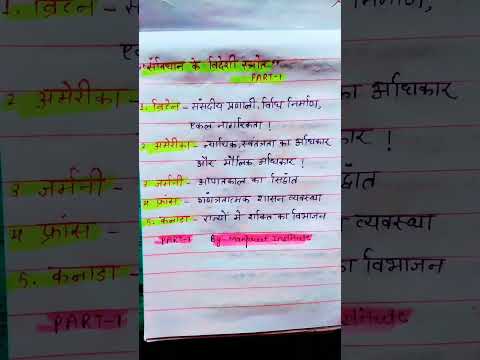 "संविधान के विदेशी स्त्रोत"
PART-1
1. ब्रिटेन – संसदीय प्रणाली, विधि निर्माण,
एकल नागरिकता !
2. अमेरिका – न्यायिक, स्वतंत्रता का अधिकार
और मौलिक अधिकार !
3. जर्मनी – आपातकाल का सिद्वांत
4. फ्रांस – शासन व्यवस्था
5. कनाडा – राज्यों में शक्ति का विभाजन
PART-1 By - Institute